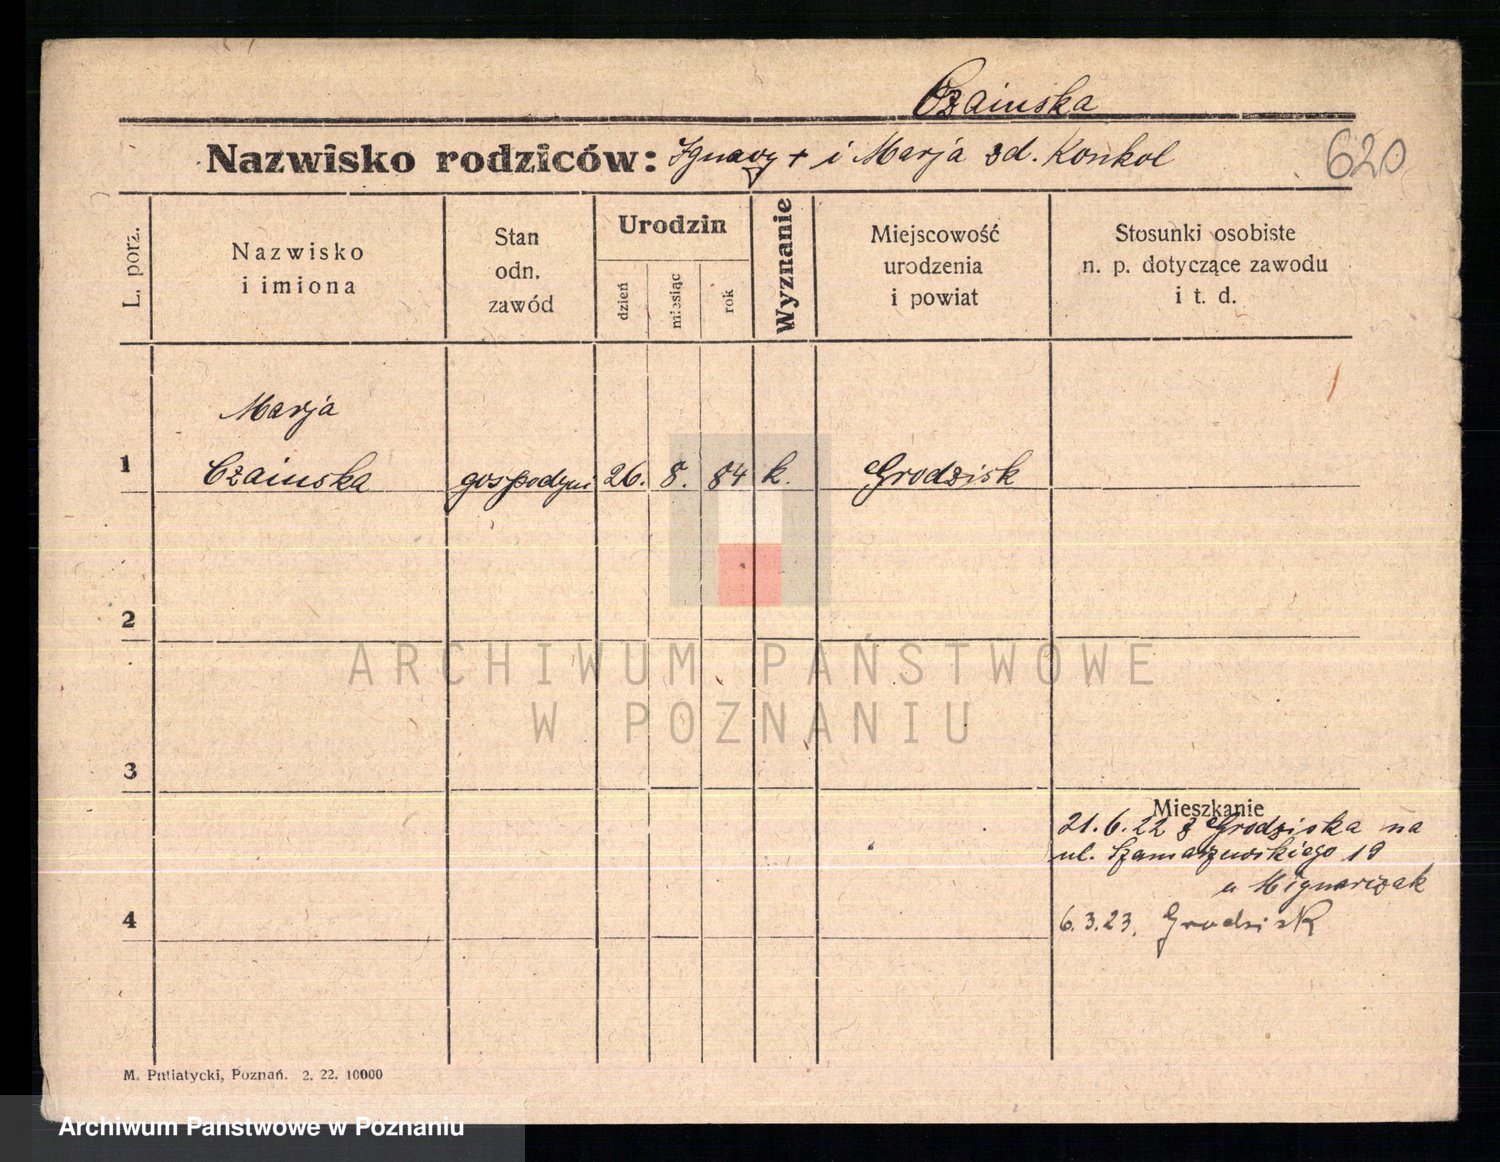 Czainska
Nazwisko rodziców: Ignacy + i Marja zd. Konkol
620
L. porz.
Nazwisko
i imiona
Stan
odn.
zawód
Urodzin
dzień
miesiąc
rok
Wyznanie
Miejscowość
urodzenia
i powiat
Stosunki osobiste
n. p. dotyczące zawodu
i t. d.
Marja
1 Czainska gospodyni 26. 8. 84 k. Grodzisk
2
ARCHIWUM PAŃSTWOWE
W POZNANIU
3
Mieszkanie
21.6.22 z Grodziska na
ul. Szamarzewskiego 19
u
4 6.3.23. Grodzisk
M. Putiatycki, Poznań. 2. 22. 10000
Archiwum Państwowe w Poznaniu